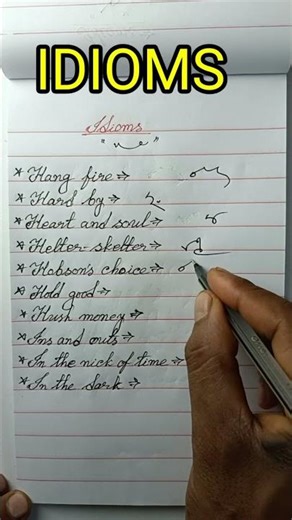 IDIOMS
Idioms
* Hang fire ⇒
* Hard by ⇒
* Heart and soul ⇒
* Helter-skelter ⇒
* Hobson's choice ⇒
* Hold good ⇒
* Hush money ⇒
* Ins and outs ⇒
* In the nick of time ⇒
* In the dark ⇒